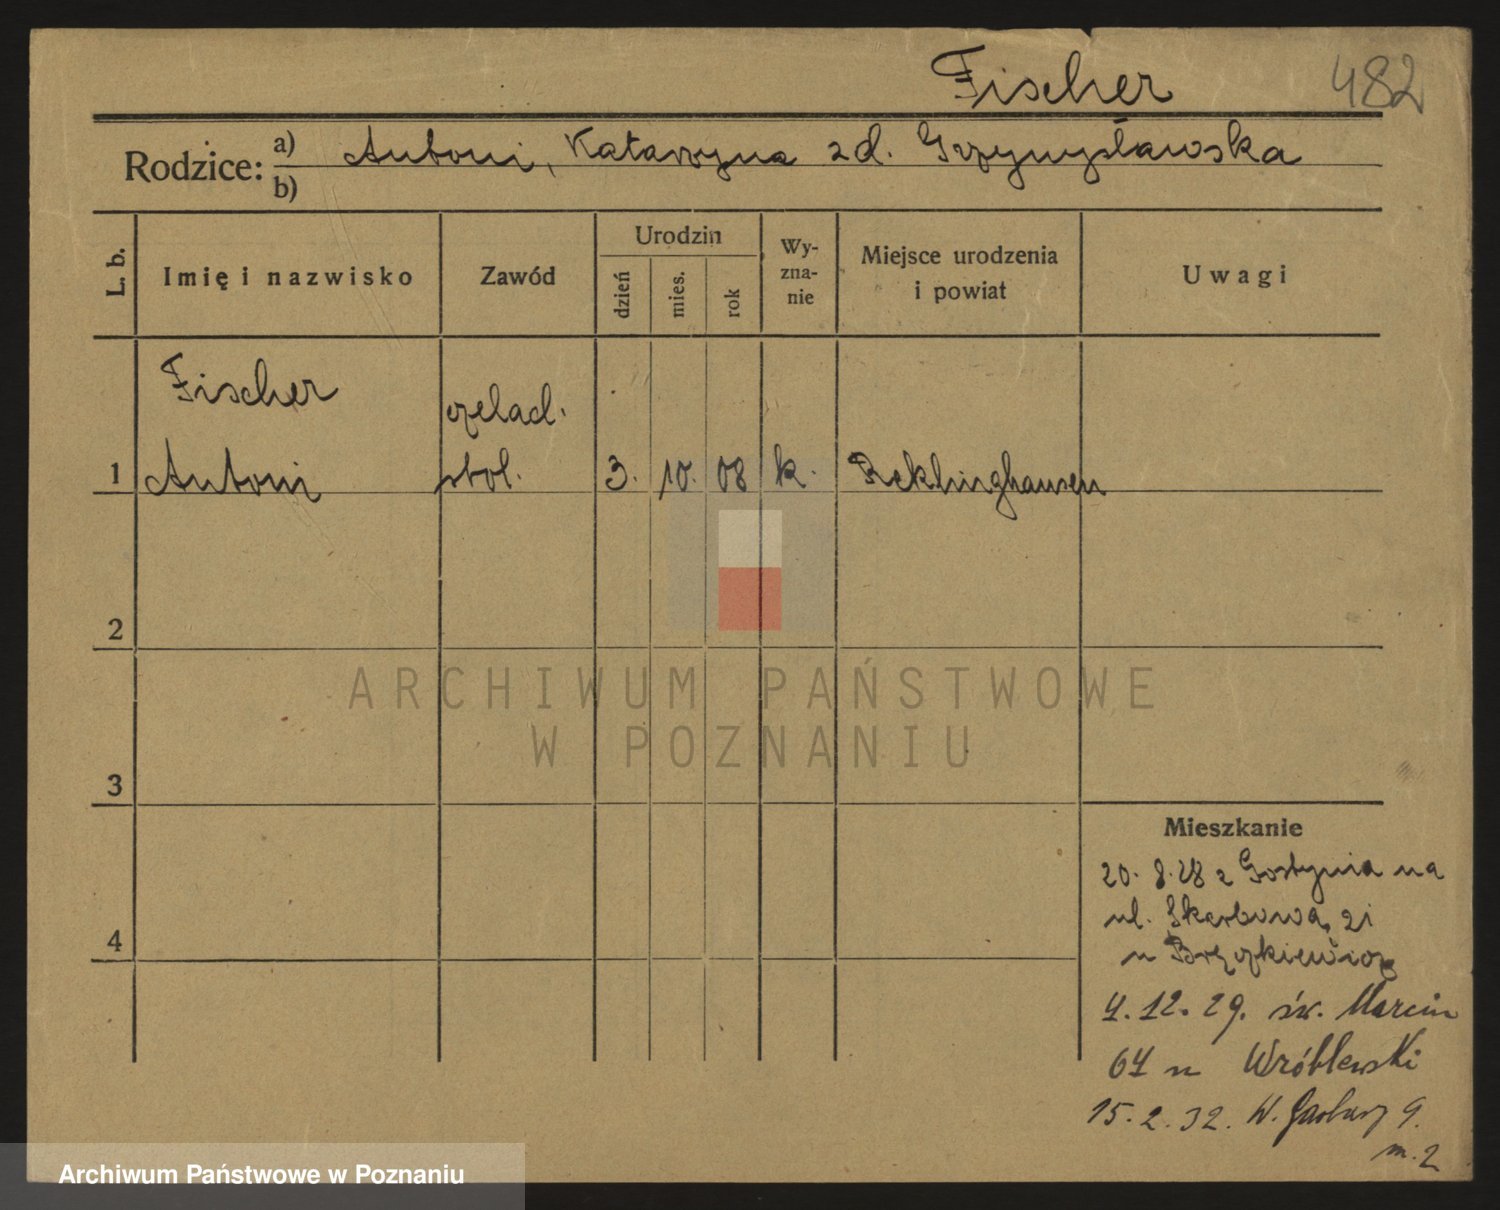 Fischer 482
Rodzice: a) Antoni, Katarzyna zd. Grzymysławska
b)
L. b. Imię i nazwisko Zawód Urodzin dzień mies. rok Wy-zna-nie Miejsce urodzenia i powiat Uwagi
Fischer czelad.
1 Antoni stol. 3. 10. 08 k. Reklinghausen
2
ARCHIWUM PAŃSTWOWE
W POZNANIU
3
Mieszkanie
20. 8. 28 z Gostynia na
ul. Skarbowa, 21
4
u Brzózkiewicz
4. 12. 29. św. Marcin
64 u Wróblewski
15. 2. 32. W. Garbary 9.
m. 2
Archiwum Państwowe w Poznaniu